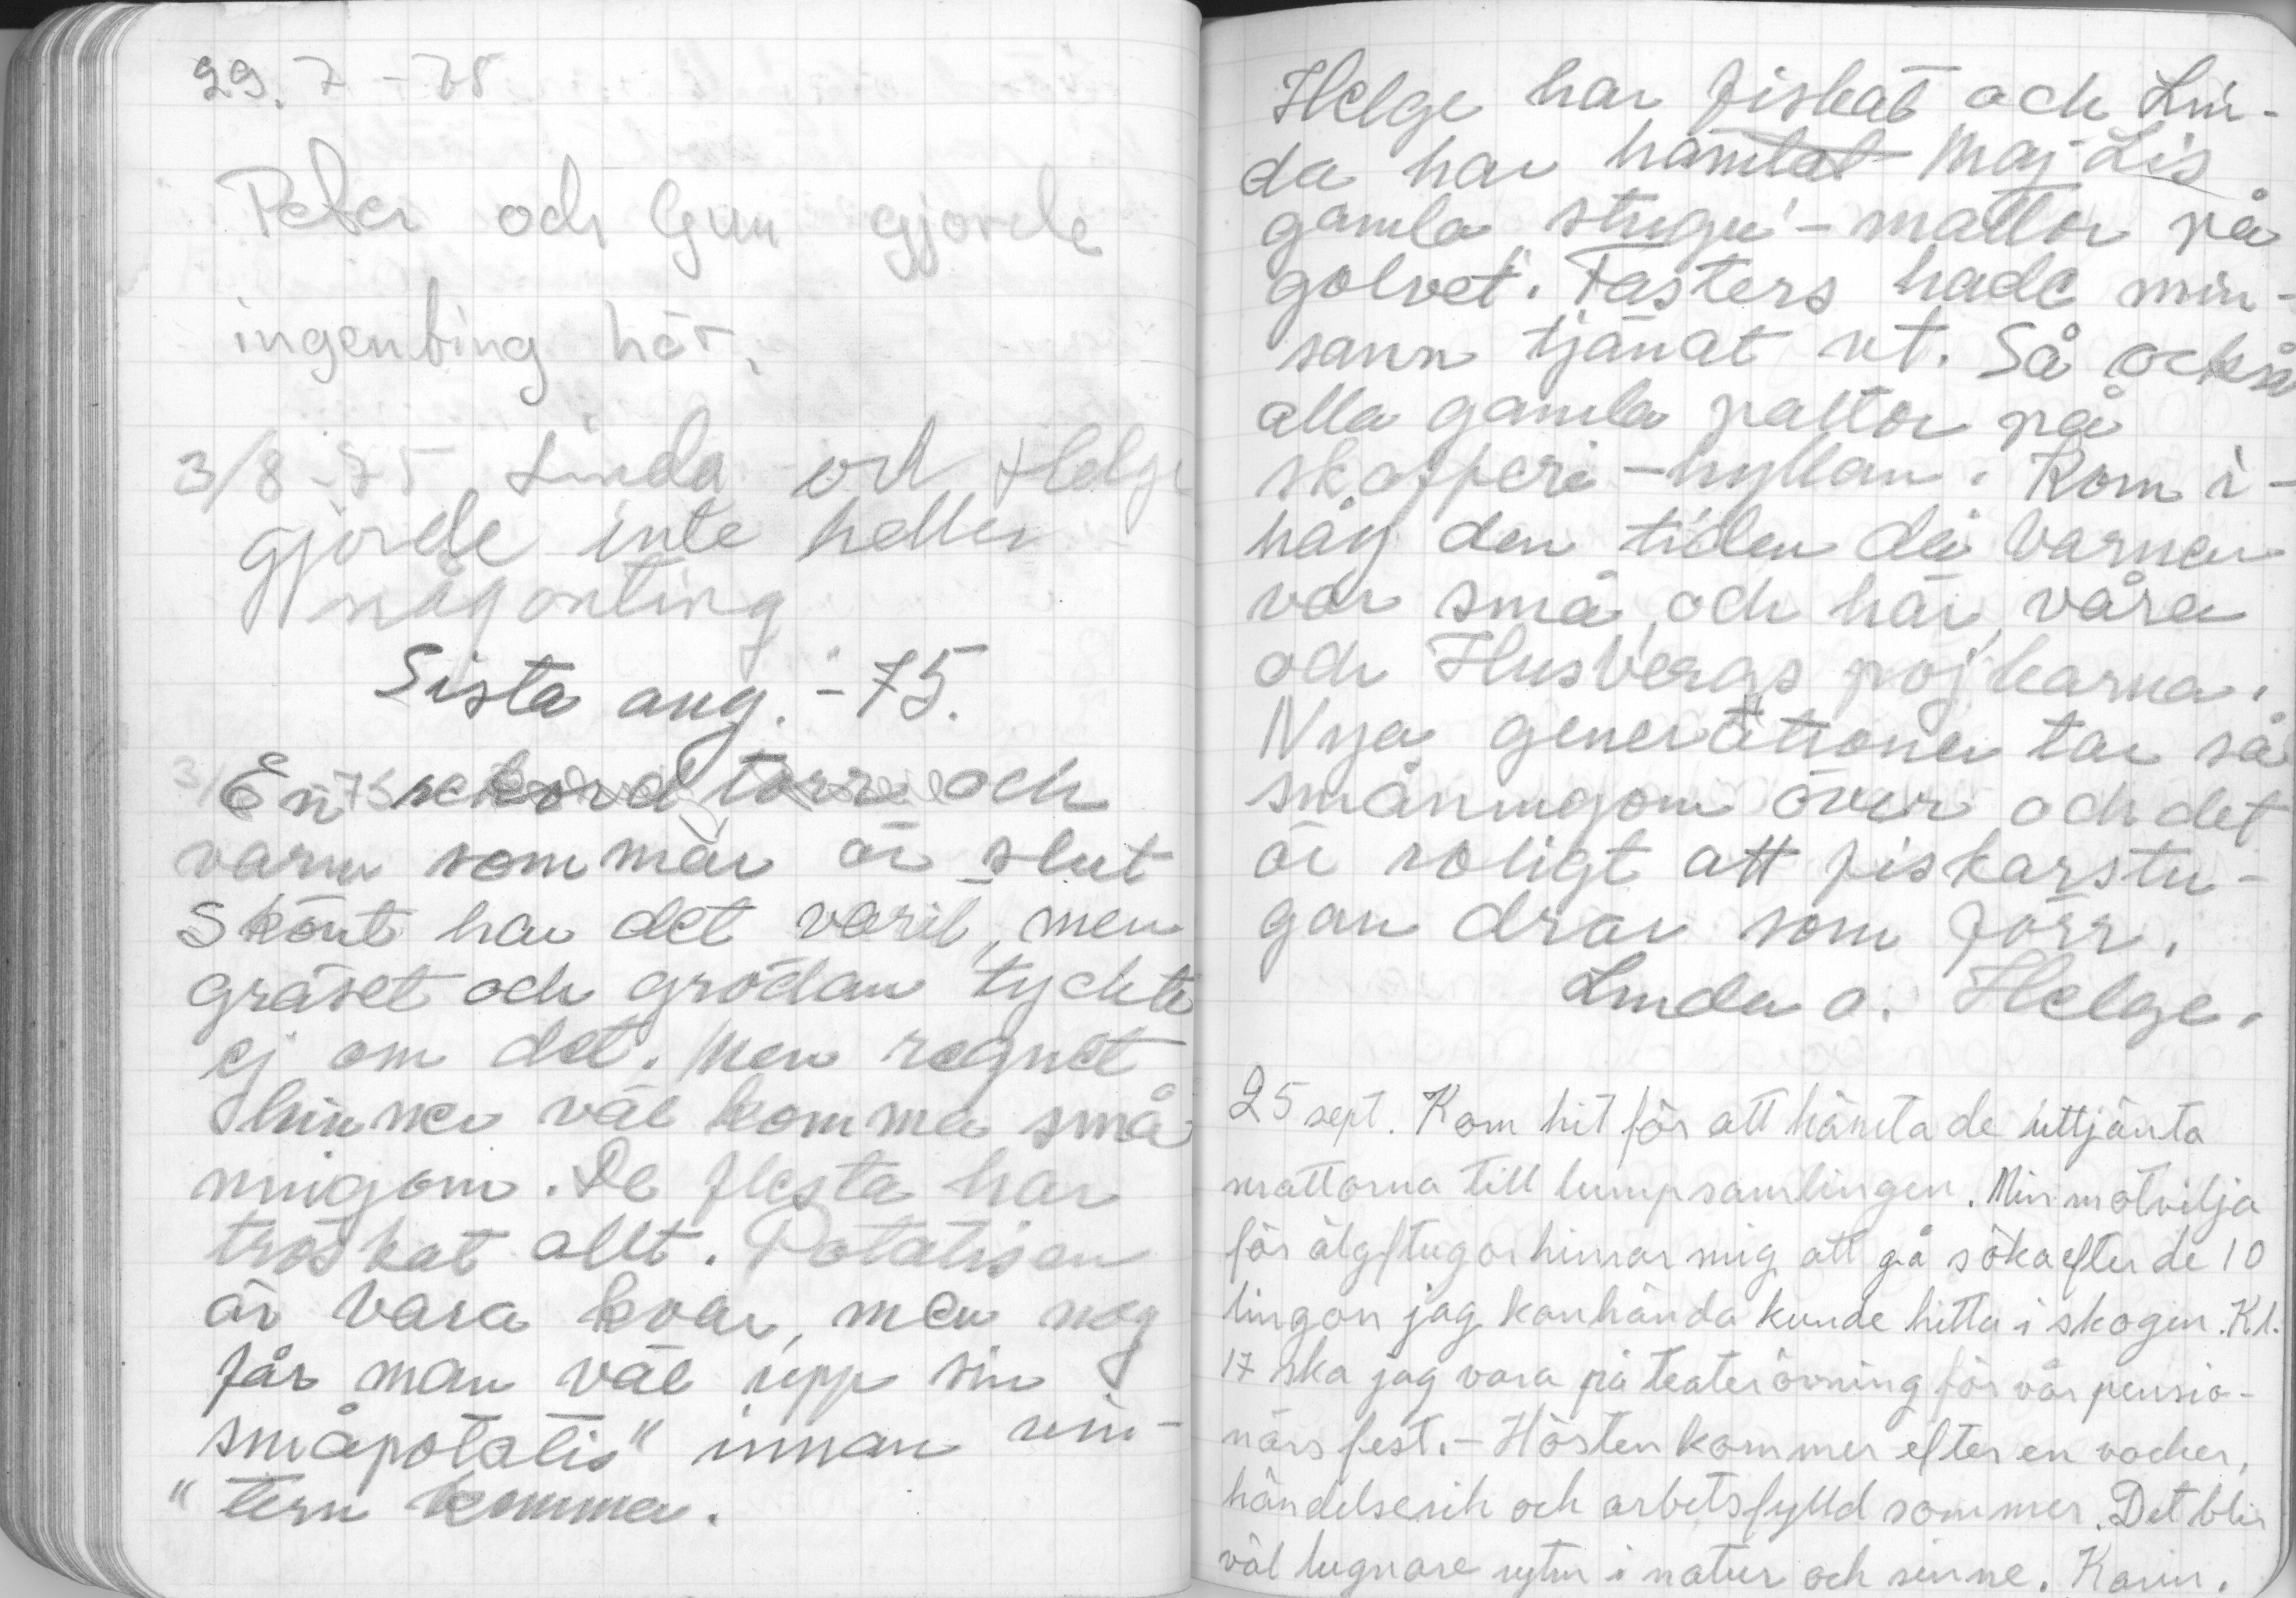 29. 7 - 75
Peter och Gun gjorde
ingenting här.
3/8 - 75 Linda och Helge
gjorde inte heller
någonting
Sista aug. - 75.
En rekord torr och
varm sommar är slut
Skönt har det varit, men
gräset och grödan tyckte
ej om det. Men regnet
hinner väl komma små
ningom. De flesta har
tröskat allt. Potatisen
är bara kvar, men nog
får man väl upp sin
småpotatis" innan vin-
" tern komma.
Helge har fiskat och Lin-
da har hämtat Maj-Lis
gamla "stugu"-mattor på
golvet. Fasters hade min-
sann tjänat ut. Så också
alla gamla paltor på
skafferi-hyllan. Kom i-
håg den tiden då barnen
var små och här våra
och Husbergs pojkarna.
Nya generationer tar så
småningom över och det
är roligt att fiskarstu-
gan drar som förr.
Linda o. Helge.
25 sept. Kom hit för att hämta de uttjänta
mattorna till lumpsamlingen. Min motvilja
för älgflugor hinrar mig att gå söka efter de 10
lingon jag kanhända kunde hitta i skogen. Kl.
17 ska jag vara på teaterövning för vår pensio-
närsfest. - Hösten kommer efter en vacker,
händelserik och arbetsfylld sommer. Det blir
väl lugnare rytm i natur och sinne. Karin.